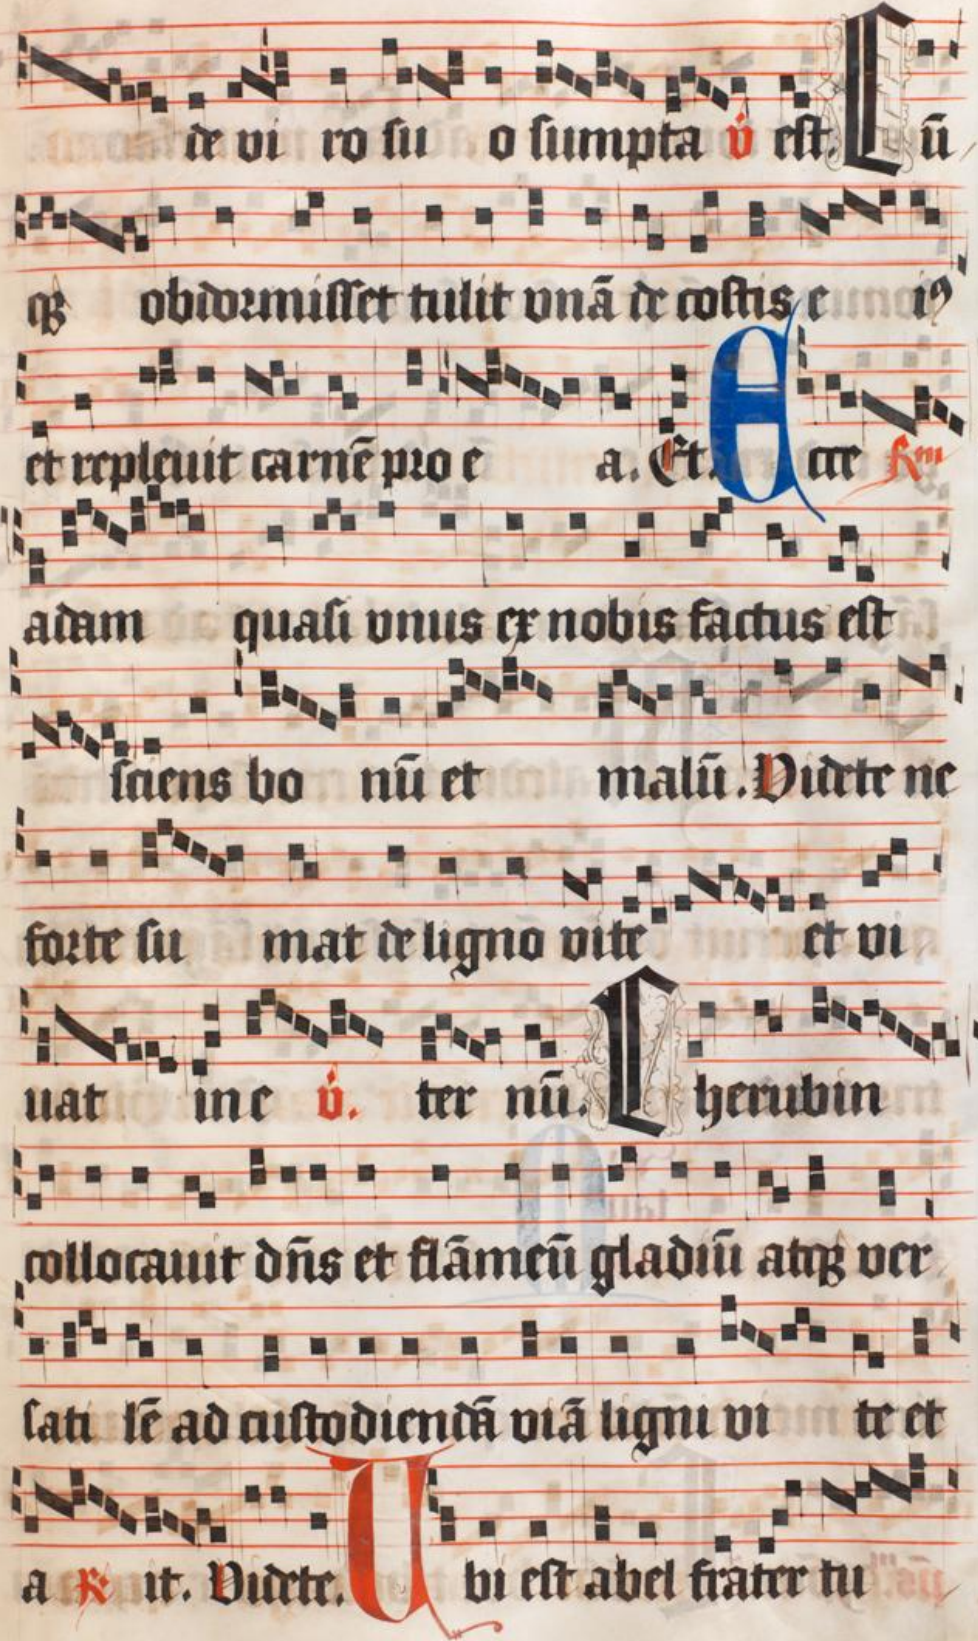 de vi ro su o sumpta v̉ est. Cū
qꝫ obdormisset tulit vnā de costis e iꝰ
et repleuit carnē pro e a. Et. Ecce Rm
adam quasi vnus ex nobis factus est
sciens bo nū et malū. Videte ne
forte su mat de ligno vite et vi
uat in e v̉. ter nū. Cherubin
collocauit dn̄s et flāmeū gladiū atqꝫ ver
sati lē ad custodiendā viā ligni vi te et
a R it. Videte. Vbi est abel frater tu